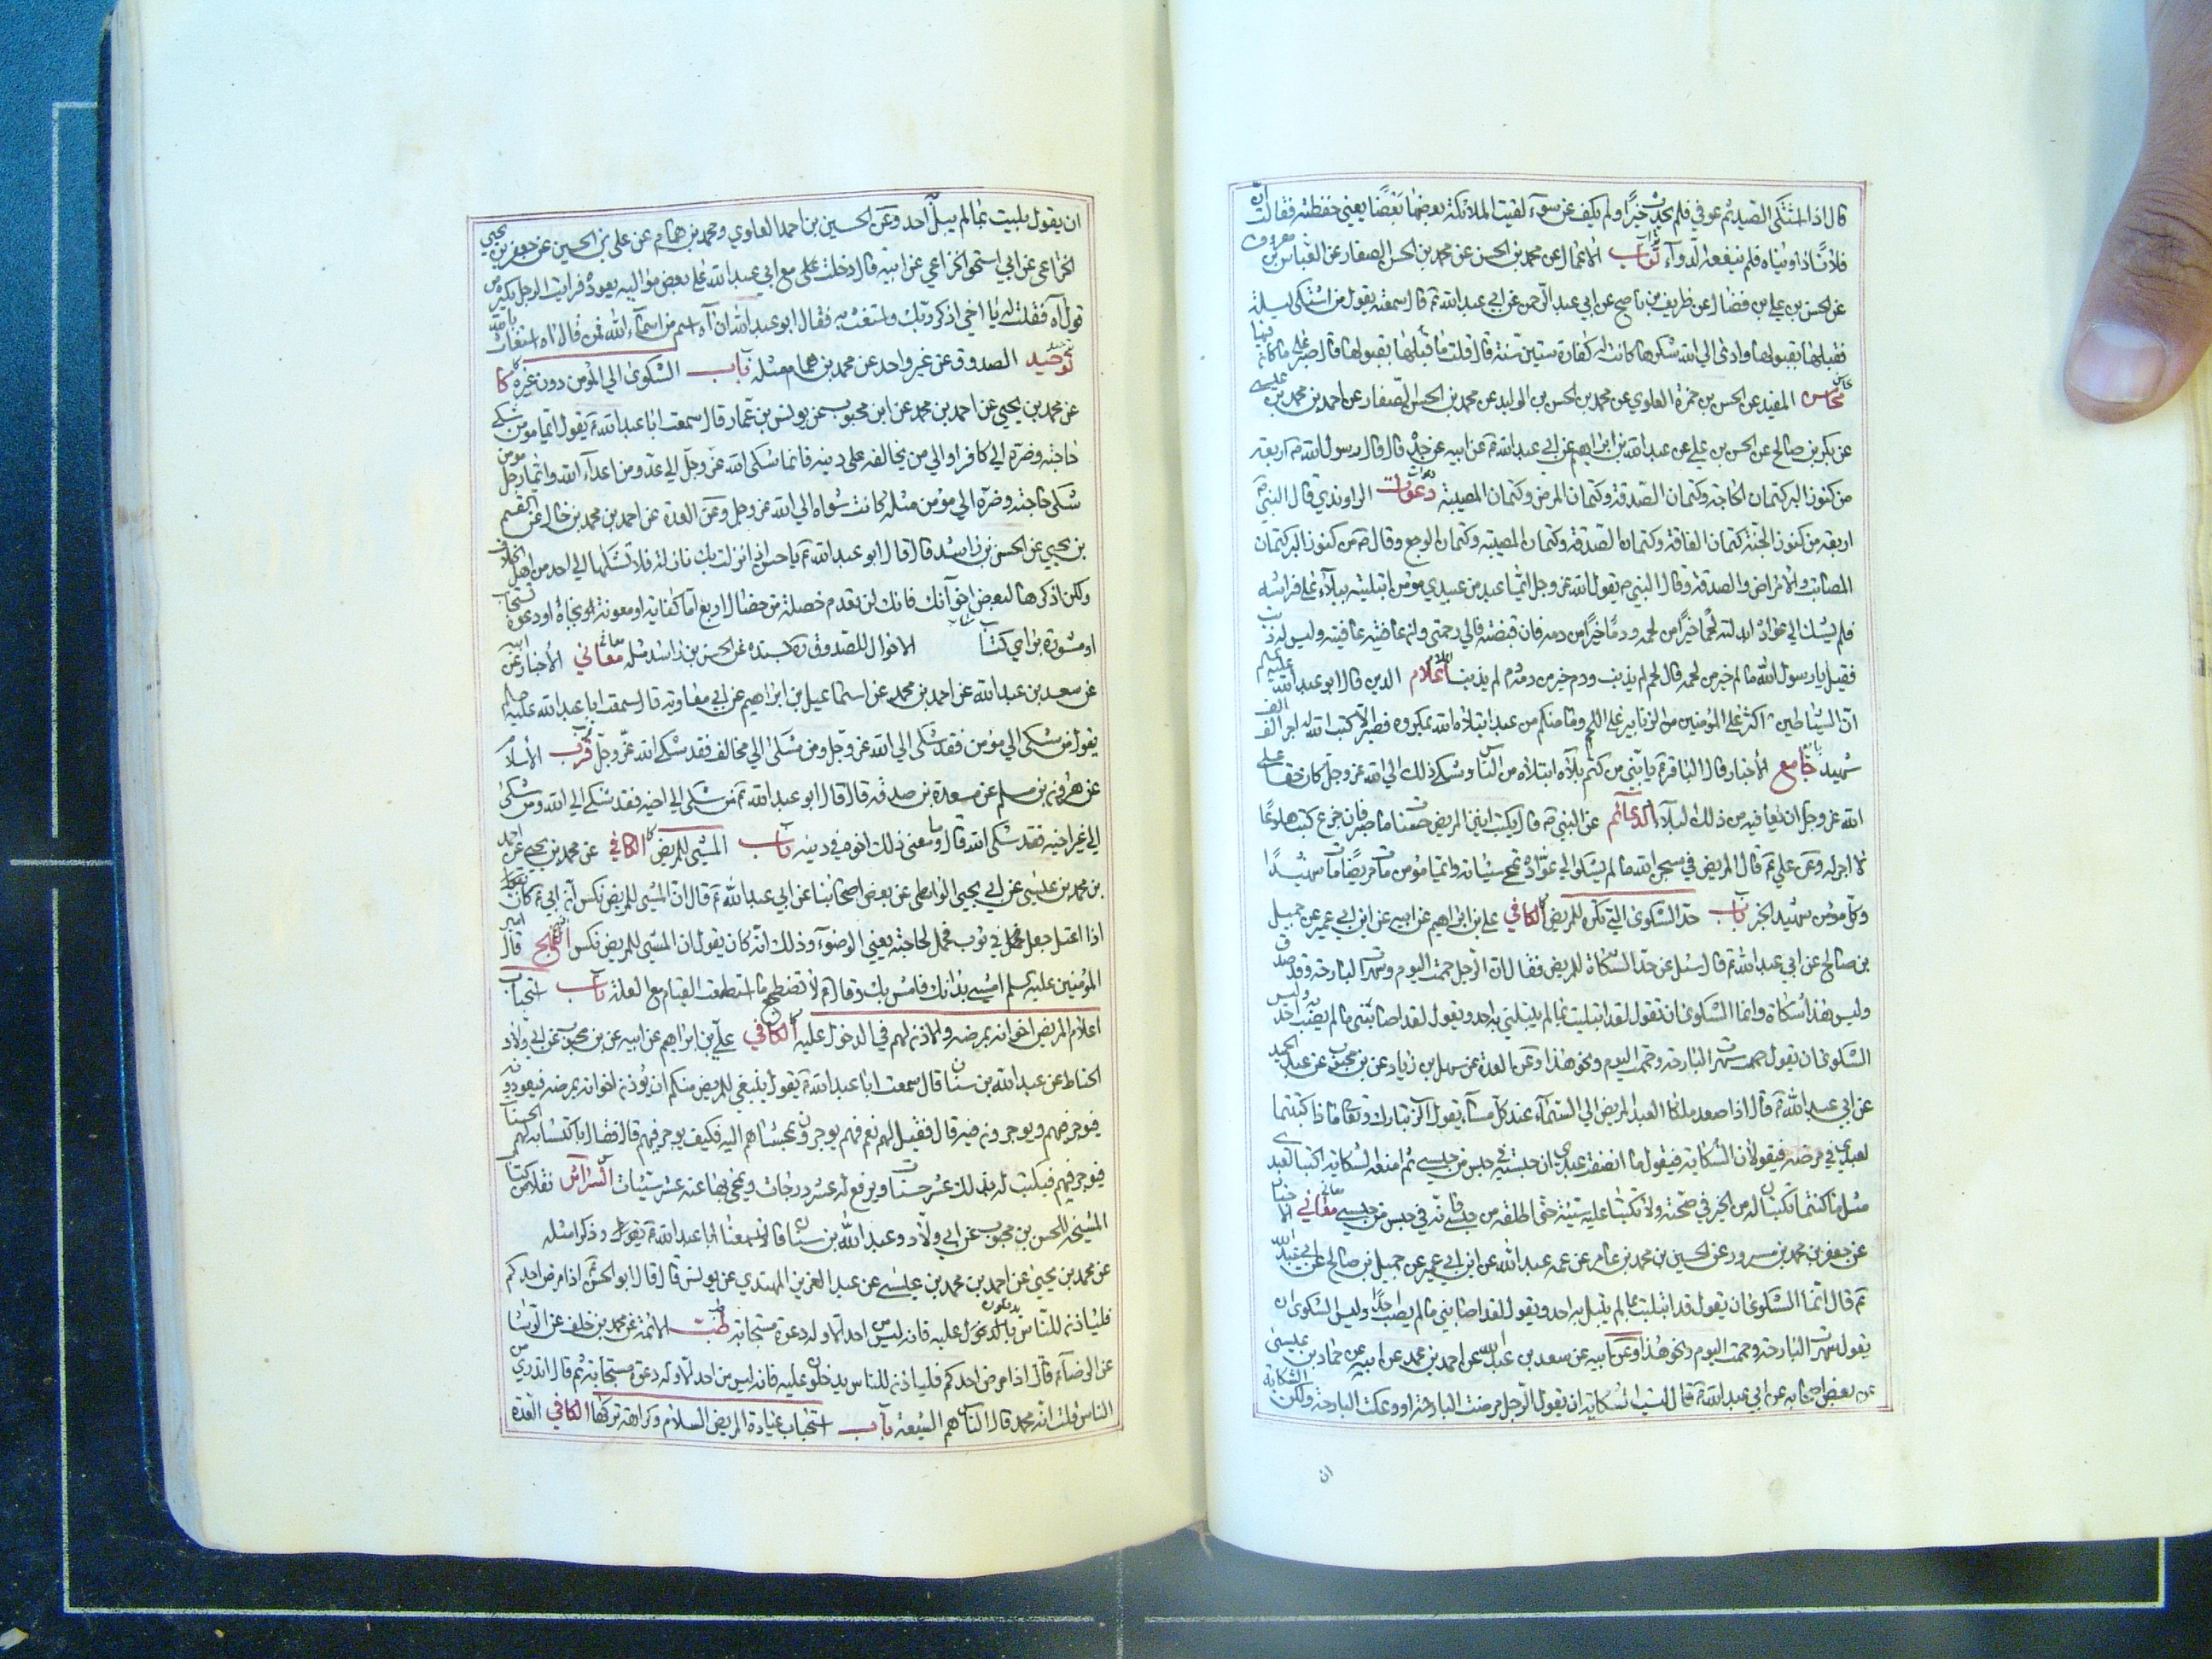 قال اذا اشتكى العبد ثم عوفي فلم يحدث خيرا ولم يكف عن سوء لقيت الملائكة بعضها بعضا يعني حفظته فقالت ان
فلانا داويناه فلم ينفعه الدواء ثواب الاعمال عن محمد بن الحسن عن محمد بن الحسن الصفار عن العباس بن معروف
عن الحسن بن علي بن فضال عن ظريف بن ناصح عن ابي عبد الرحمن عن ابي عبد الله ع قال سمعته يقول من اشتكى ليلة
فقبلها بقبولها وادى الى الله شكرها كانت له كفارة ستين سنة قال قلت ما قبلها بقبولها قال صبر على ما كان فيها
مجالس المفيد عن الحسن بن حمزة العلوي عن محمد بن الحسن بن الوليد عن محمد بن الحسن الصفار عن احمد بن محمد بن عيسى
عن بكر بن صالح عن الحسن بن علي عن عبد الله بن ابراهيم عن ابي عبد الله ع عن ابيه عن جده قال قال رسول الله ص اربعة
من كنوز البر كتمان الحاجة وكتمان الصدقة وكتمان المرض وكتمان المصيبة دعوات الراوندي قال النبي ص
اربعة من كنوز الجنة كتمان الفاقة وكتمان الصدقة وكتمان المصيبة وكتمان الوجع وقال ص من كنوز البر كتمان
المصائب والامراض والصدقة وقال النبي ص يقول الله عز وجل ايما عبد من عبيدي مؤمن ابتليته ببلاء على فراشه
فلم يشك الى عواده ابدلته لحما خيرا من لحمه ودما خيرا من دمه فان قبضته فالى رحمتي وان عافيته عافيته وليس له ذنب
فقيل يا رسول الله ما لحم خير من لحمه قال لحم لم يذنب ودم خير من دمه دم لم يذنب اعلام الدين قال ابو عبد الله عليه السلم
ان الشياطين اكثر على المؤمنين من الزنابير على اللحم وما منكم من عبد ابتلاه الله بمكروه فصبر الا كتب الله له اجر الف الف
شهيد جامع الأخبار قال الباقر ع يا بني من كتم بلاء ابتلاه من الناس وشكى ذلك الى الله عز وجل كان حقا على
الله عز وجل ان يعافيه من ذلك البلاء الدعائم عن النبي ص قال يكتب انين المريض حسنات ما صبر فان جزع كتب هلوعا
لا اجر له وعن علي ع قال المريض في سجن الله ما لم يشك الى عواده تمحى سيئاته وايما مؤمن مات مريضا مات شهيدا
وكل مؤمن شهيد الخبر باب حد الشكوى التي تكره للمريض الكافي علي بن ابراهيم عن ابيه عن ابن ابي عمير عن جميل
بن صالح عن ابي عبد الله ع قال سئل عن حد الشكاة للمريض فقال ان الرجل حممت اليوم وسهرت البارحة وقد صدق
وليس هذا شكاة وانما الشكوى ان تقول لقد ابتليت بما لم يبتل به احد وتقول لقد اصابني ما لم يصب احد وليس
الشكوى ان يقول سهرت البارحة وحممت اليوم ونحو هذا وعن العدة عن سهل بن زياد عن بن محبوب عن عبد الحميد
عن ابي عبد الله ع قال اذا صعد ملكا العبد المريض الى السماء عند كل مساء يقول الرب تبارك وتعالى ماذا كتبتما
لعبدي في مرضه فيقولان الشكاية فيقول ما انصفت عبدي ان حبسته في حبس من حبسي ثم امنعه الشكاية اكتبا لعبدي
مثل ما كنتما تكتبان له من الخير في صحته ولا تكتبا عليه سيئة حتى اطلقه من حبسي فانه في حبس من حبسي معاني الاخبار
عن جعفر بن محمد بن مسرور عن الحسين بن محمد بن عامر عن عمه عبد الله عن ابن ابي عمير عن جميل بن صالح عن ابي عبد الله
ع قال انما الشكوى ان يقول قد ابتليت بما لم يبتل به احد ويقول لقد اصابني ما لم يصب احدا وليس الشكوى ان
يقول سهرت البارحة وحممت اليوم ونحو هذا وعن ابيه عن سعد بن عبد الله عن احمد بن محمد عن ابيه عن حماد بن عيسى
عن بعض اصحابه عن ابي عبد الله ع قال ليست الشكاية ان يقول الرجل مرضت البارحة او وعكت البارحة ولكن الشكاية
ان
ان يقول بليت بما لم يبل به احد وعن الحسين بن احمد العلوي ومحمد بن همام عن علي بن الحسين عن جعفر بن يحيى
الخزاعي عن ابي اسحق الخزاعي عن ابيه قال دخلت مع ابي عبد الله على بعض مواليه يعوده فرايت الرجل يكثر من
قول آه فقلت له يا اخي اذكر ربك واستغث به فقال ابو عبد الله ان آه اسم من اسماء الله فمن قال آه استغاث بالله
توحيد الصدوق عن غير واحد عن محمد بن همام مثله باب الشكوى الى المؤمن دون غيره كا
عن محمد بن يحيى عن احمد بن محمد عن ابن محبوب عن يونس بن عمار قال سمعت ابا عبد الله ع يقول ايما مؤمن شكى
حاجته وضره الى كافر او الى من يخالفه على دينه فانما شكى الله عز وجل الى عدو من اعداء الله وايما رجل مؤمن
شكى حاجته وضره الى مؤمن مثله كانت شكواه الى الله عز وجل وعن العدة عن احمد بن محمد بن خالد عن القسم
بن يحيى عن الحسن بن راشد قال قال ابو عبد الله ع يا حسن اذا نزلت بك نازلة فلا تشكها الى احد من اهل الخلاف
ولكن اذكرها لبعض اخوانك فانك لن تعدم خصلة من خصال اربع اما كفاية او معونة بجاه او دعوة تستجاب
او مشورة براي كتاب الاخوان للصدوق ره بسنده عن الحسن بن راشد مثله معاني الأخبار عن ابيه
عن سعد بن عبد الله عن احمد بن محمد عن اسماعيل بن ابراهيم عن ابي معاوية قال سمعت ابا عبد الله عليه السلم
يقول من شكى الى مؤمن فقد شكى الى الله عز وجل ومن شكى الى مخالف فقد شكى الله عز وجل قرب الأسناد
عن هرون بن مسلم عن مسعدة بن صدقة قال قال ابو عبد الله ع من شكى الى اخيه فقد شكى الى الله ومن شكى
الى غير اخيه فقد شكى الله قال ومعنى ذلك اخوه في دينه باب المشي للمريض الكافي عن محمد بن يحيى عن احمد
بن محمد بن عيسى عن ابي يحيى الواسطي عن بعض اصحابنا عن ابي عبد الله ع قال ان المشي للمريض نكس ان ابي ع كان
اذا اعتل جعل في ثوب فحمل لحاجته يعني الوضوء وذلك انه كان يقول ان المشي للمريض نكس النهج قال امير
المؤمنين عليه السلم امش بدائك ما مشى بك وقال ع لا تضطجع ما استطعت القيام مع العلة باب استحباب
اعلام المريض اخوانه بمرضه والاذن لهم في الدخول عليه الكافي علي بن ابراهيم عن ابيه عن بن محبوب عن ابي ولاد
الحناط عن عبد الله بن سنان قال سمعت ابا عبد الله ع يقول ينبغي للمريض منكم ان يؤذن اخوانه بمرضه فيعودونه
فيؤجر فيهم ويؤجرون فيه قال فقيل له نعم فهم يؤجرون بمجيئهم اليه فكيف يؤجر فيهم قال فقال باكتسابه لهم الحسنات
فيؤجر فيهم فيكتب له بذلك عشر حسنات ويرفع له عشر درجات ويمحى بها عنه عشر سيئات السرائر نقلا من كتاب
المشيخة للحسن بن محبوب عن ابي ولاد وعبد الله بن سنان قالا سمعنا ابا عبد الله ع يقول وذكر مثله
عن محمد بن يحيى عن احمد بن محمد بن عيسى عن عبد العزيز المهتدي عن يونس قال قال ابو الحسن ع اذا مرض احدكم
فلياذن للناس يدخلون عليه فانه ليس من احد الا وله دعوة مستجابة طب الائمة عن محمد بن خلف عن الوشا
عن الرضا ع قال اذا مرض احدكم فلياذن للناس يدخلون عليه فانه ليس من احد الا وله دعوة مستجابة ثم قال اتدري من
الناس قلت امة محمد قال الناس هم الشيعة باب استحباب عيادة المريض المسلم وكراهة تركها الكافي العدة